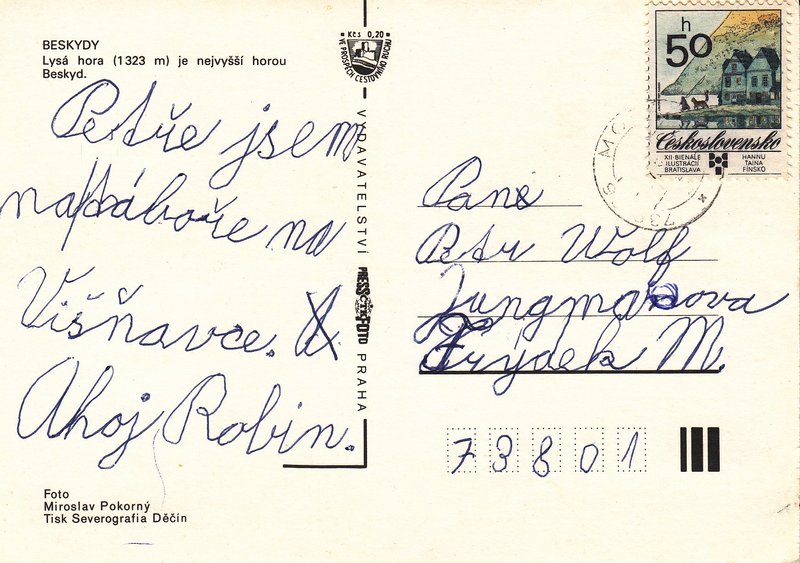 BESKYDY
Lysá hora (1323 m) je nejvyšší horou
Beskyd.
Kčs 0,20
VE PROSPĚCH CESTOVNÍHO RUCHU
h
50
Československo
XII·BIENÁLE
ILUSTRÁCIÍ
BRATISLAVA
HANNU
TAINA
FÍNSKO
Petře jsem
na táboře na
Višňavce.
Ahoj Robin.
VYDAVATELSTVÍ PRESSFOTO PRAHA
ČTK
Pan
Petr Wolf
Jungmanova
Frýdek M.
73801
Foto
Miroslav Pokorný
Tisk Severografia Děčín